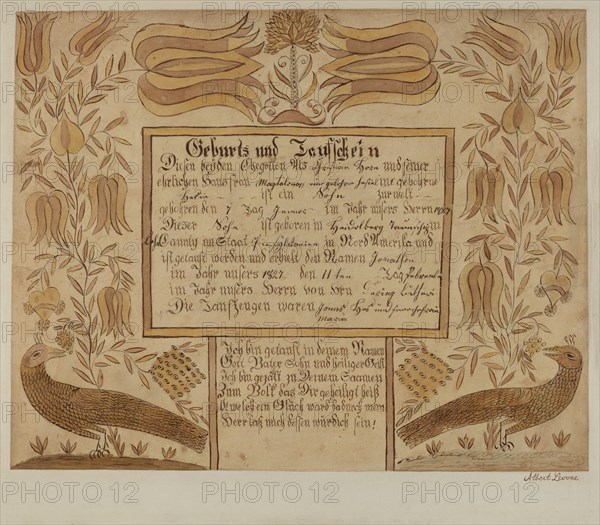 Geburts und Taufschein
Diesen beyden Ehegatten Als Christian Horn und seiner
ehrlichen Hausfrau Magdalena, eine gebohrne
ist ein Sohn zur welt
gebohren den 7 Tag Januar im Jahr unsers Herrn 1827
Dieser Sohn ist geboren in Heidelberg Taunschip in
Caunty im Staat Pensylvanien in Nord Amerika und
ist getauft worden und erhielt den Namen Jonathan
im Jahr unsers 1827 den 11 ten Tag Februar
im Jahr unsers Herrn von Hrn
Die Taufzeugen waren Jonas und
Maria
Ich bin getauft in deinem Namen
Gott Vater Sohn und heiliger Geist
Ich bin gezält zu Deinem Saamen
Zum Volk das Dir geheiligt heiß
O welch ein Glück ward dadurch mein
Herr laß mich dessen würdich sein!
Albert Levone
PHOTO12